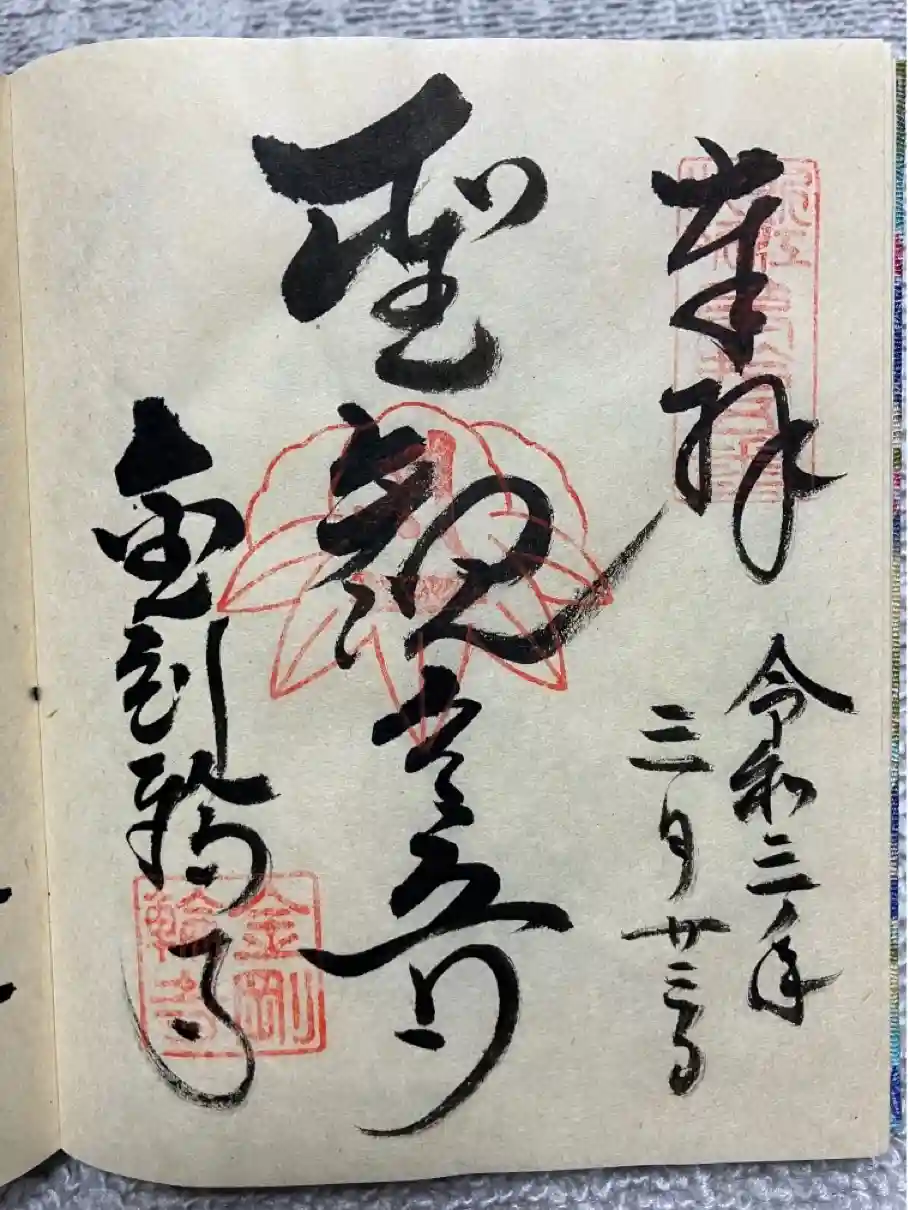 奉拝
令和三年
三月廿三日
聖観音
金剛輪寺
金剛
輪寺